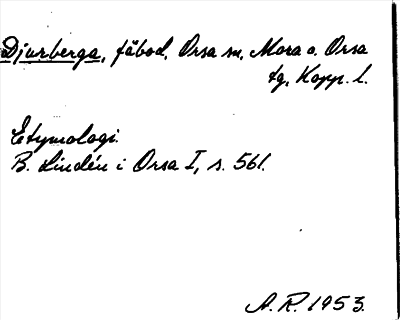 Djurberga, fäbod, Orsa sn, Mora o. Orsa
tg, Kopp. l.
Etymologi.
B. Lindén i Orsa I, s. 561.
A. R. 1953.